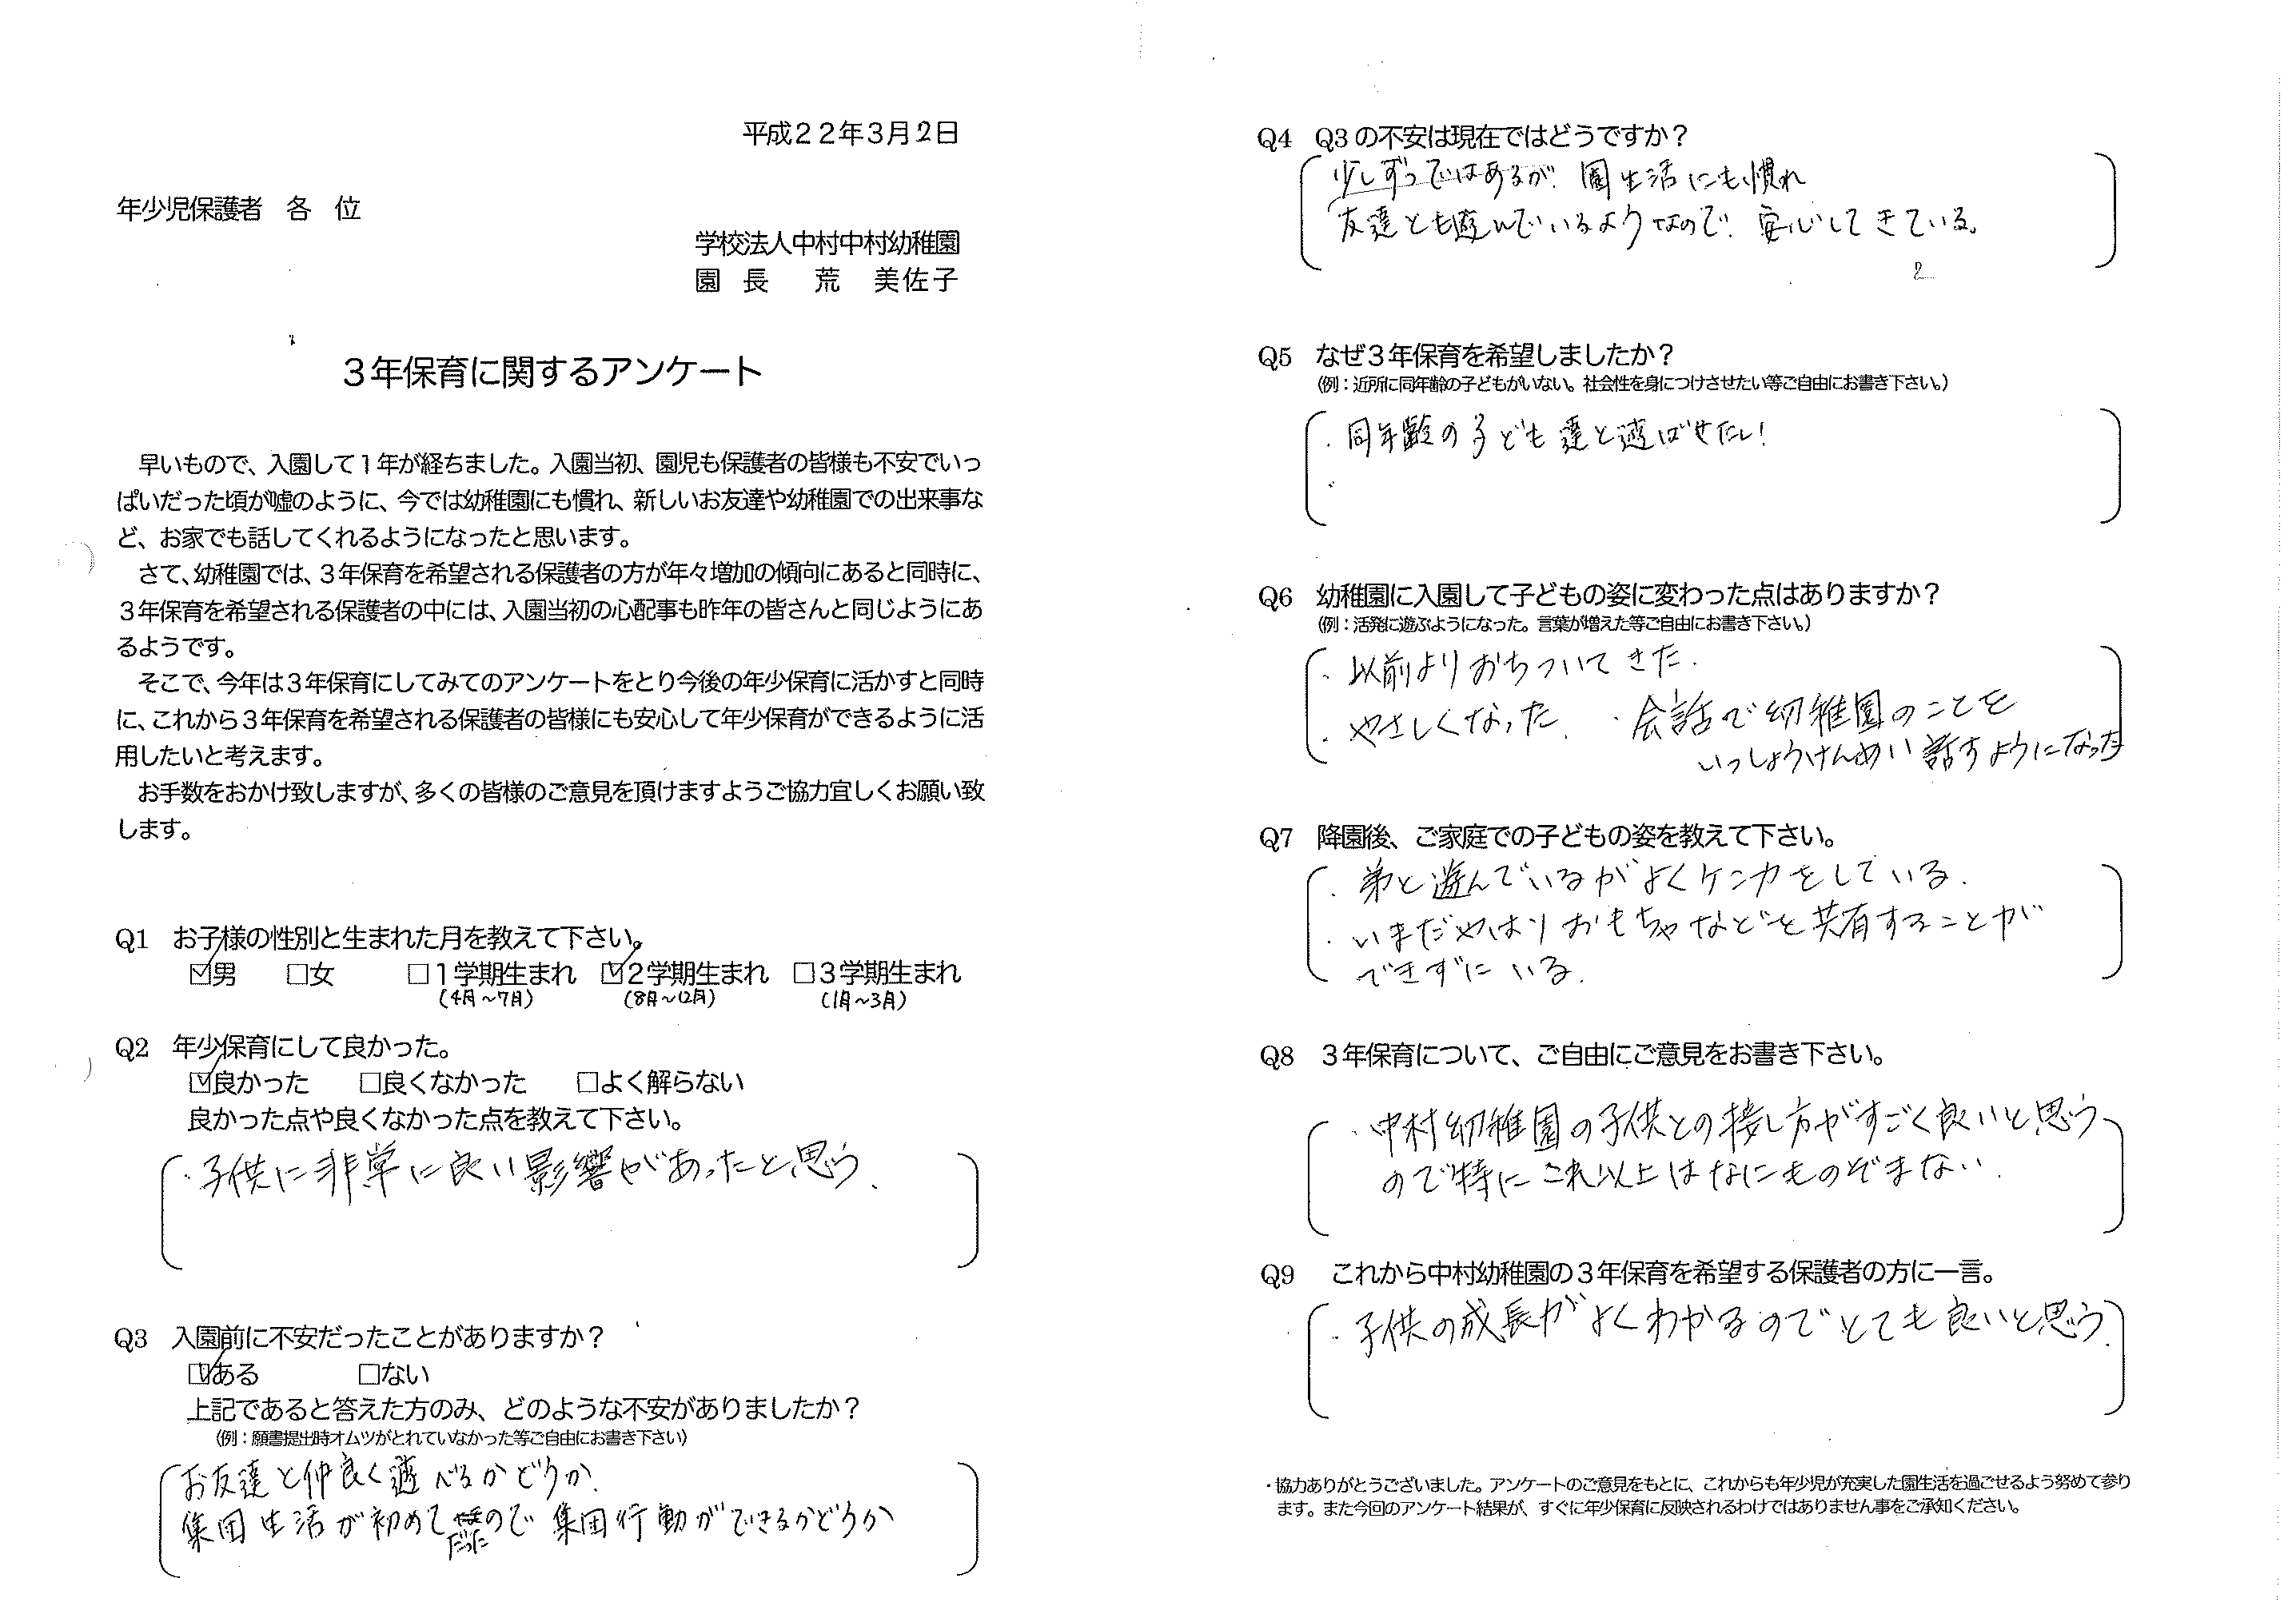 平成22年3月2日
年少児保護者　各　位
学校法人中村中村幼稚園
園　長　　荒　美佐子
3年保育に関するアンケート
早いもので、入園して1年が経ちました。入園当初、園児も保護者の皆様も不安でいっ
ぱいだった頃が嘘のように、今では幼稚園にも慣れ、新しいお友達や幼稚園での出来事な
ど、お家でも話してくれるようになったと思います。
さて、幼稚園では、3年保育を希望される保護者の方が年々増加の傾向にあると同時に、
3年保育を希望される保護者の中には、入園当初の心配事も昨年の皆さんと同じようにあ
るようです。
そこで、今年は3年保育にしてみてのアンケートをとり今後の年少保育に活かすと同時
に、これから3年保育を希望される保護者の皆様にも安心して年少保育ができるように活
用したいと考えます。
お手数をおかけ致しますが、多くの皆様のご意見を頂けますようご協力宜しくお願い致
します。
Q1　お子様の性別と生まれた月を教えて下さい。
☑男　□女　□1学期生まれ　☑2学期生まれ　□3学期生まれ
(4月～7月)　(8月～12月)　(1月～3月)
Q2　年少保育にして良かった。
☑良かった　□良くなかった　□よく解らない
良かった点や良くなかった点を教えて下さい。
・子供に非常に良い影響があったと思う.
Q3　入園前に不安だったことがありますか？
☑ある　□ない
上記であると答えた方のみ、どのような不安がありましたか？
(例：願書提出時オムツがとれていなかった等ご自由にお書き下さい)
お友達と仲良く遊べるかどうか.
集団生活が初めてだったので集団行動ができるかどうか
Q4　Q3の不安は現在ではどうですか？
少しずつではあるが. 園生活にも慣れ
友達とも遊んでいるようなので. 安心してきている。
2
Q5　なぜ3年保育を希望しましたか？
(例：近所に同年齢の子どもがいない。社会性を身につけさせたい等ご自由にお書き下さい。)
・同年齢の子ども達と遊ばせたい!
Q6　幼稚園に入園して子どもの姿に変わった点はありますか？
(例：活発に遊ぶようになった。言葉が増えた等ご自由にお書き下さい。)
・以前よりおちついてきた.
・やさしくなった.　・会話で幼稚園のことを
いっしょうけんめい話すようになった
Q7　降園後、ご家庭での子どもの姿を教えて下さい。
・弟と遊んでいるがよくケンカをしている.
・いまだやはりおもちゃなどを共有することが
できずにいる.
Q8　3年保育について、ご自由にご意見をお書き下さい。
・中村幼稚園の子供との接し方がすごく良いと思う
ので特にこれ以上はなにものぞまない.
Q9　これから中村幼稚園の3年保育を希望する保護者の方に一言。
・子供の成長がよくわかるのでとても良いと思う.
・協力ありがとうございました。アンケートのご意見をもとに、これからも年少児が充実した園生活を過ごせるよう努めて参り
ます。また今回のアンケート結果が、すぐに年少保育に反映されるわけではありません事をご承知ください。